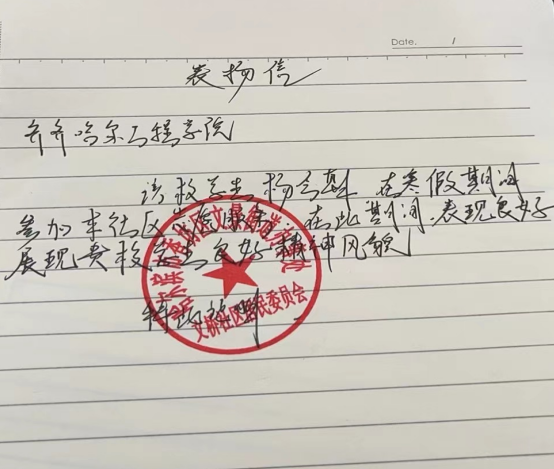 Date. /
表扬信
齐齐哈尔工程学院
该校学生杨 在寒假期间
参加本社区 在此期间,表现良好
展现贵校学生良好精神风貌
特此
区文 街道
社区居民委员会